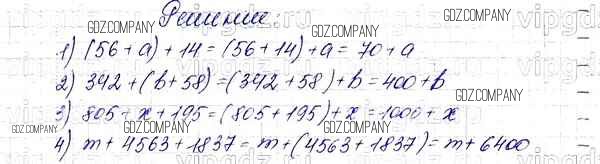 Решение:
1) (56 + a) + 14 = (56 + 14) + a = 70 + a
2) 342 + (b + 58) = (342 + 58) + b = 400 + b
3) 805 + x + 195 = (805 + 195) + x = 1000 + x
4) m + 4563 + 1837 = m + (4563 + 1837) = m + 6400
GDZ.COMPANY
GDZ.COMPANY
GDZ.COMPANY
GDZ.COMPANY
GDZ.COMPANY
GDZ.COMPANY
GDZ.COMPANY
vipgdz